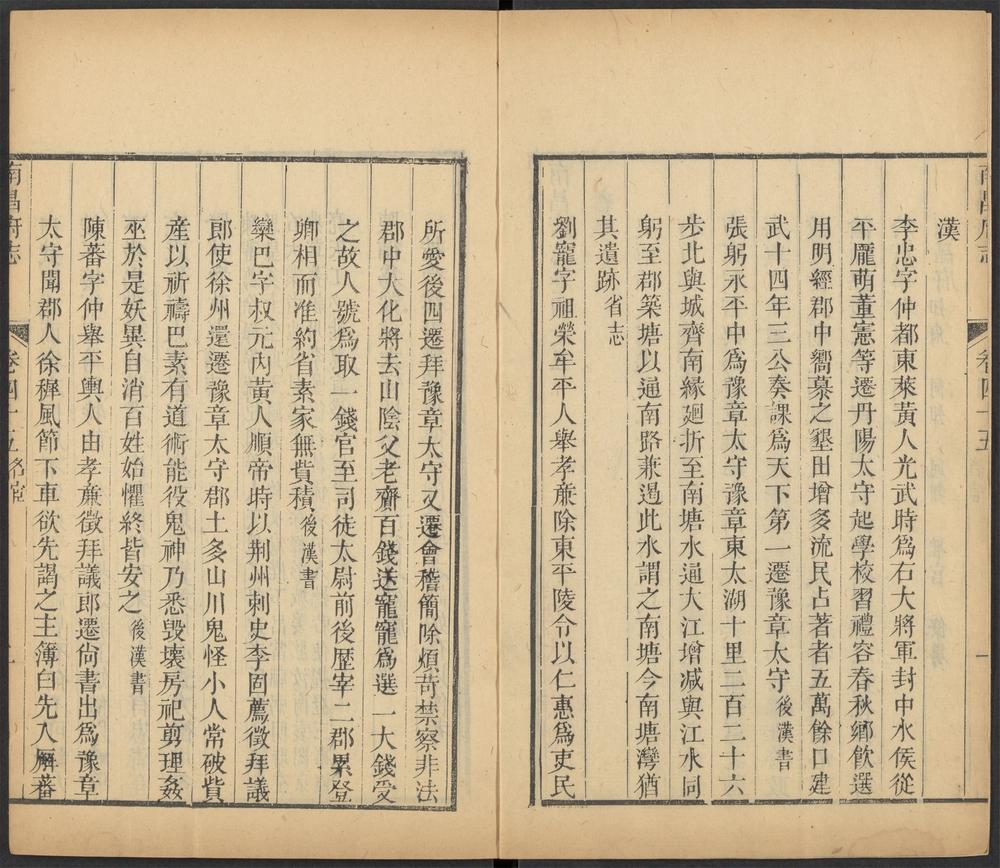 南昌府志
卷四十五
一
漢
李忠字仲都東萊黃人光武時爲右大將軍封中水侯從
平龎萌董憲等遷丹陽太守起學校習禮容春秋鄉飲選
用明經郡中嚮慕之墾田增多流民占著者五萬餘口建
武十四年三公奏課爲天下第一遷豫章太守後漢書
張躬永平中爲豫章太守豫章東太湖十里二百二十六
步北與城齊南緣廻折至南塘水通大江增減與江水同
躬至郡築塘以通南路兼遏此水謂之南塘今南塘灣猶
其遺跡省志
劉寵字祖榮牟平人舉孝㢘除東平陵令以仁惠爲吏民
所愛後四遷拜豫章太守又遷會稽簡除煩苛禁察非法
郡中大化將去山陰父老齎百錢送寵寵爲選一大錢受
之故人號爲取一錢官至司徒太尉前後歷宰二郡累登
卿相而准約省素家無貲積後漢書
欒巴字叔元內黃人順帝時以荆州刺史李固薦徵拜議
郎使徐州還遷豫章太守郡土多山川鬼怪小人常破貲
產以祈禱巴素有道術能役鬼神乃悉毀壞房祀剪理姦
巫於是妖異自消百姓始懼終皆安之後漢書
陳蕃字仲舉平輿人由孝㢘徵拜議郎遷尙書出爲豫章
太守聞郡人徐穉風節下車欲先謁之主簿白先入廨蕃
南昌府志
卷四十五名宦